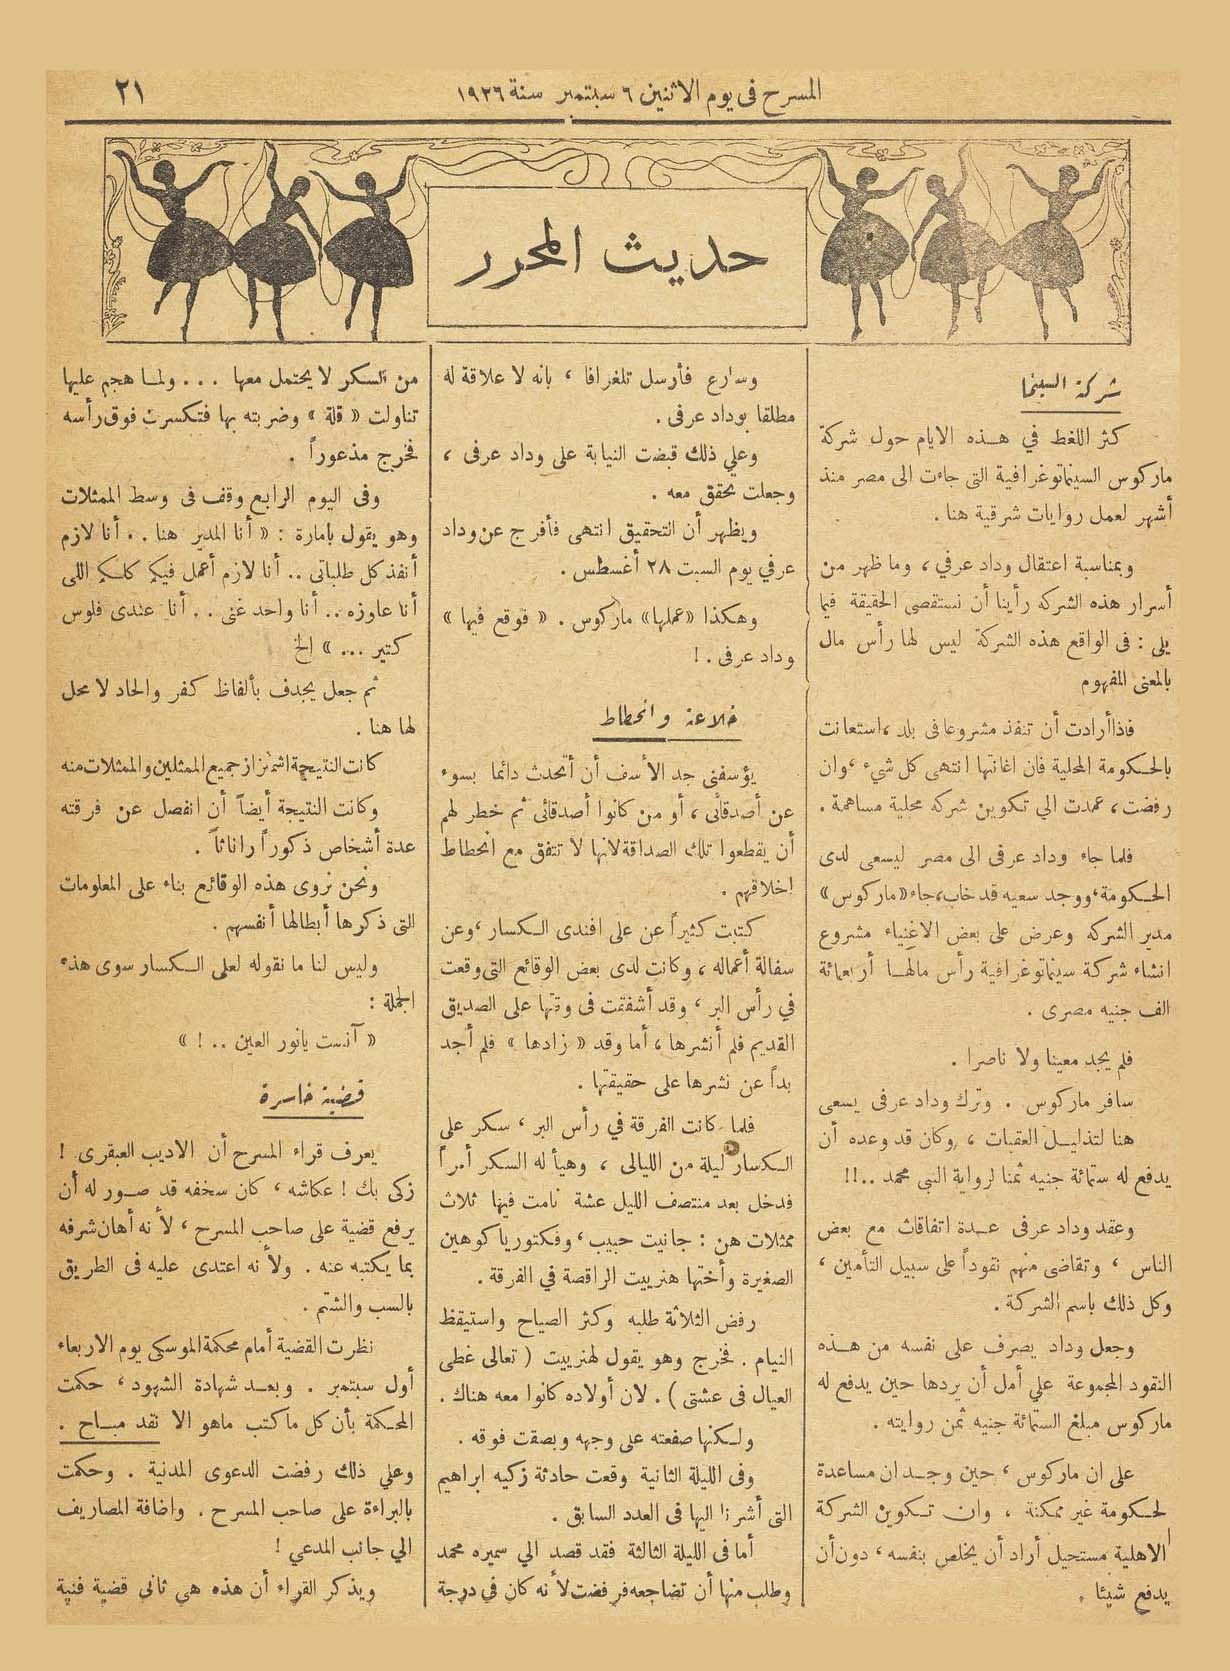 المسرح فى يوم الاثنين ٦ سبتمبر سنة ١٩٢٦
٢١
حديث المحرر
شركة السينما
كثر اللغط في هذه الايام حول شركة
ماركوس السينماتوغرافية التى جاءت الى مصر منذ
أشهر لعمل روايات شرقية هنا .
وبمناسبة اعتقال وداد عرفي ، وما ظهر من
أسرار هذه الشركه رأينا أن نستقصى الحقيقة فيما
يلى : فى الواقع هذه الشركة ليس لها رأس مال
بالمعنى المفهوم
فاذا أرادت أن تنفذ مشروعا فى بلد ، استعانت
بالحكومة المحلية فان اغاثتها انتهى كل شيء ، وان
رفضت ، عمدت الي تكوين شركه محلية مساهمة .
فلما جاء وداد عرفى الى مصر ليسعى لدى
الحكومة ، ووجد سعيه قد خاب ، جاء « ماركوس »
مدير الشركه وعرض على بعض الاغنياء مشروع
انشاء شركة سينماتوغرافية رأس مالها أربعمائة
الف جنيه مصرى .
فلم يجد معينا ولا ناصرا .
سافر ماركوس . وترك وداد عرفى يسعى
هنا لتذليل العقبات ، وكان قد وعده أن
يدفع له ستمائة جنيه ثمنا لرواية النبى محمد ..!!
وعقد وداد عرفى عدة اتفاقات مع بعض
الناس ، وتقاضى منهم نقوداً على سبيل التأمين ،
وكل ذلك باسم الشركة .
وجعل وداد يصرف على نفسه من هذه
النقود المجموعة علي أمل أن يردها حين يدفع له
ماركوس مبلغ الستمائة جنيه ثمن روايته .
على ان ماركوس ، حين وجد ان مساعدة
لحكومة غير ممكنة ، وان تكوين الشركة
الاهلية مستحيل أراد أن يخلص بنفسه ، دون أن
يدفع شيئا .
وسارع فأرسل تلغرافا ، بانه لا علاقة له
مطلقا بوداد عرفى .
وعلي ذلك قبضت النيابة على وداد عرفى ،
وجعلت تحقق معه .
ويظهر أن التحقيق انتهى فأفرج عن وداد
عرفي يوم السبت ٢٨ أغسطس .
وهكذا « عملها » ماركوس . « فوقع فيها »
وداد عرفى . !
خلاعة وانحطاط
يؤسفنى جد الأسف أن أتحدث دائما بسوء
عن أصدقائى ، أو من كانوا أصدقائى ثم خطر لهم
أن يقطعوا تلك الصداقة لانها لا تتفق مع انحطاط
اخلاقهم .
كتبت كثيراً عن على افندى الكسار ، وعن
سفالة أعماله ، وكانت لدى بعض الوقائع التى وقعت
في رأس البر ، وقد أشفقت فى وقتها على الصديق
القديم فلم أنشرها ، أما وقد « زادها » فلم أجد
بداً عن نشرها على حقيقتها .
فلما كانت الفرقة في رأس البر ، سكر على
الكسار ليلة من الليالى ، وهيأ له السكر أمراً
فدخل بعد منتصف الليل عشة نامت فيها ثلاث
ممثلات هن : جانيت حبيب ، وفكتوريا كوهين
الصغيرة وأختها هنرييت الراقصة في الفرقة .
رفض الثلاثة طلبه وكثر الصياح واستيقظ
النيام . فخرج وهو يقول لهنرييت ( تعالى غطى
العيال فى عشتى ) . لان أولاده كانوا معه هناك .
ولكنها صفعته على وجهه وبصقت فوقه .
وفى الليلة الثانية وقعت حادثة زكيه ابراهيم
التى أشرنا اليها فى العدد السابق .
أما فى الليلة الثالثة فقد قصد الي سميره محمد
وطلب منها أن تضاجعه فرفضت لأنه كان في درجة
من السكر لا يحتمل معها ... ولما هجم عليها
تناولت « قلة » وضربته بها فتكسرت فوق رأسه
فخرج مذعوراً .
وفى اليوم الرابع وقف فى وسط الممثلات
وهو يقول بأمارة : « أنا المدير هنا .. أنا لازم
أنفذ كل طلباتى .. أنا لازم أعمل فيكم كلكم اللى
أنا عاوزه .. أنا واحد غنى .. أنا عندى فلوس
كتير ... » الخ
ثم جعل يجدف بألفاظ كفر والحاد لا محل
لها هنا .
كانت النتيجة اشمئزاز جميع الممثلين والممثلات منه
وكانت النتيجة أيضاً أن انفصل عن فرقته
عدة أشخاص ذكوراً واناثاً .
ونحن نروى هذه الوقائع بناء على المعلومات
التى ذكرها أبطالها أنفسهم .
وليس لنا ما نقوله لعلى الكسار سوى هذه
الجملة :
« آنست يانور العين .. ! »
قضية خاسرة
يعرف قراء المسرح أن الاديب العبقرى !
زكى بك ! عكاشه ، كان سخفه قد صور له أن
يرفع قضية على صاحب المسرح ، لأنه أهان شرفه
بما يكتبه عنه . ولأنه اعتدى عليه فى الطريق
بالسب والشتم .
نظرت القضية أمام محكمة الموسكى يوم الاربعاء
أول سبتمبر . وبعد شهادة الشهود ، حكمت
المحكمة بأن كل ما كتب ماهو الا نقد مباح .
وعلي ذلك رفضت الدعوى المدنية . وحكمت
بالبراءة على صاحب المسرح . واضافة المصاريف
الي جانب المدعي !
ويذكر القراء أن هذه هي ثانى قضية فنية